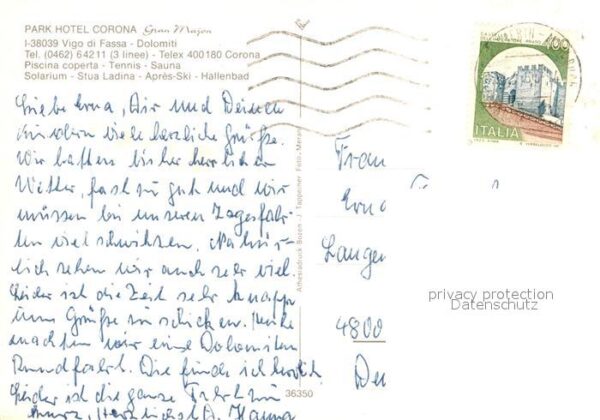 PARK HOTEL CORONA Gran Mugon
I-38039 Vigo di Fassa - Dolomiti
Tel. (0462) 64211 (3 linee) - Telex 400180 Corona
Piscina coperta - Tennis - Sauna
Solarium - Stua Ladina - Après-Ski - Hallenbad
Liebe Erna, Dir und Deinen
Kindern viele herzliche Grüße.
Wir hatten bisher herrliches
Wetter, fast zu gut und wir
müssen bei unseren Tagesfahr-
ten viel schwitzen. Natür-
lich sehen wir auch sehr viel.
Leider ist die Zeit sehr knapp
um Grüße zu schicken. Heute
machten wir eine Dolomiten
Rundfahrt. Die finde ich herrlich
Leider ist die ganze Fahrt zu
kurz, Herzlichst D. Hanna
Athesiadruck Bozen - J. Tappeiner Foto, Meran
36350
400
ITALIA
Frau
Erna
Langen
4800
privacy protection
Datenschutz